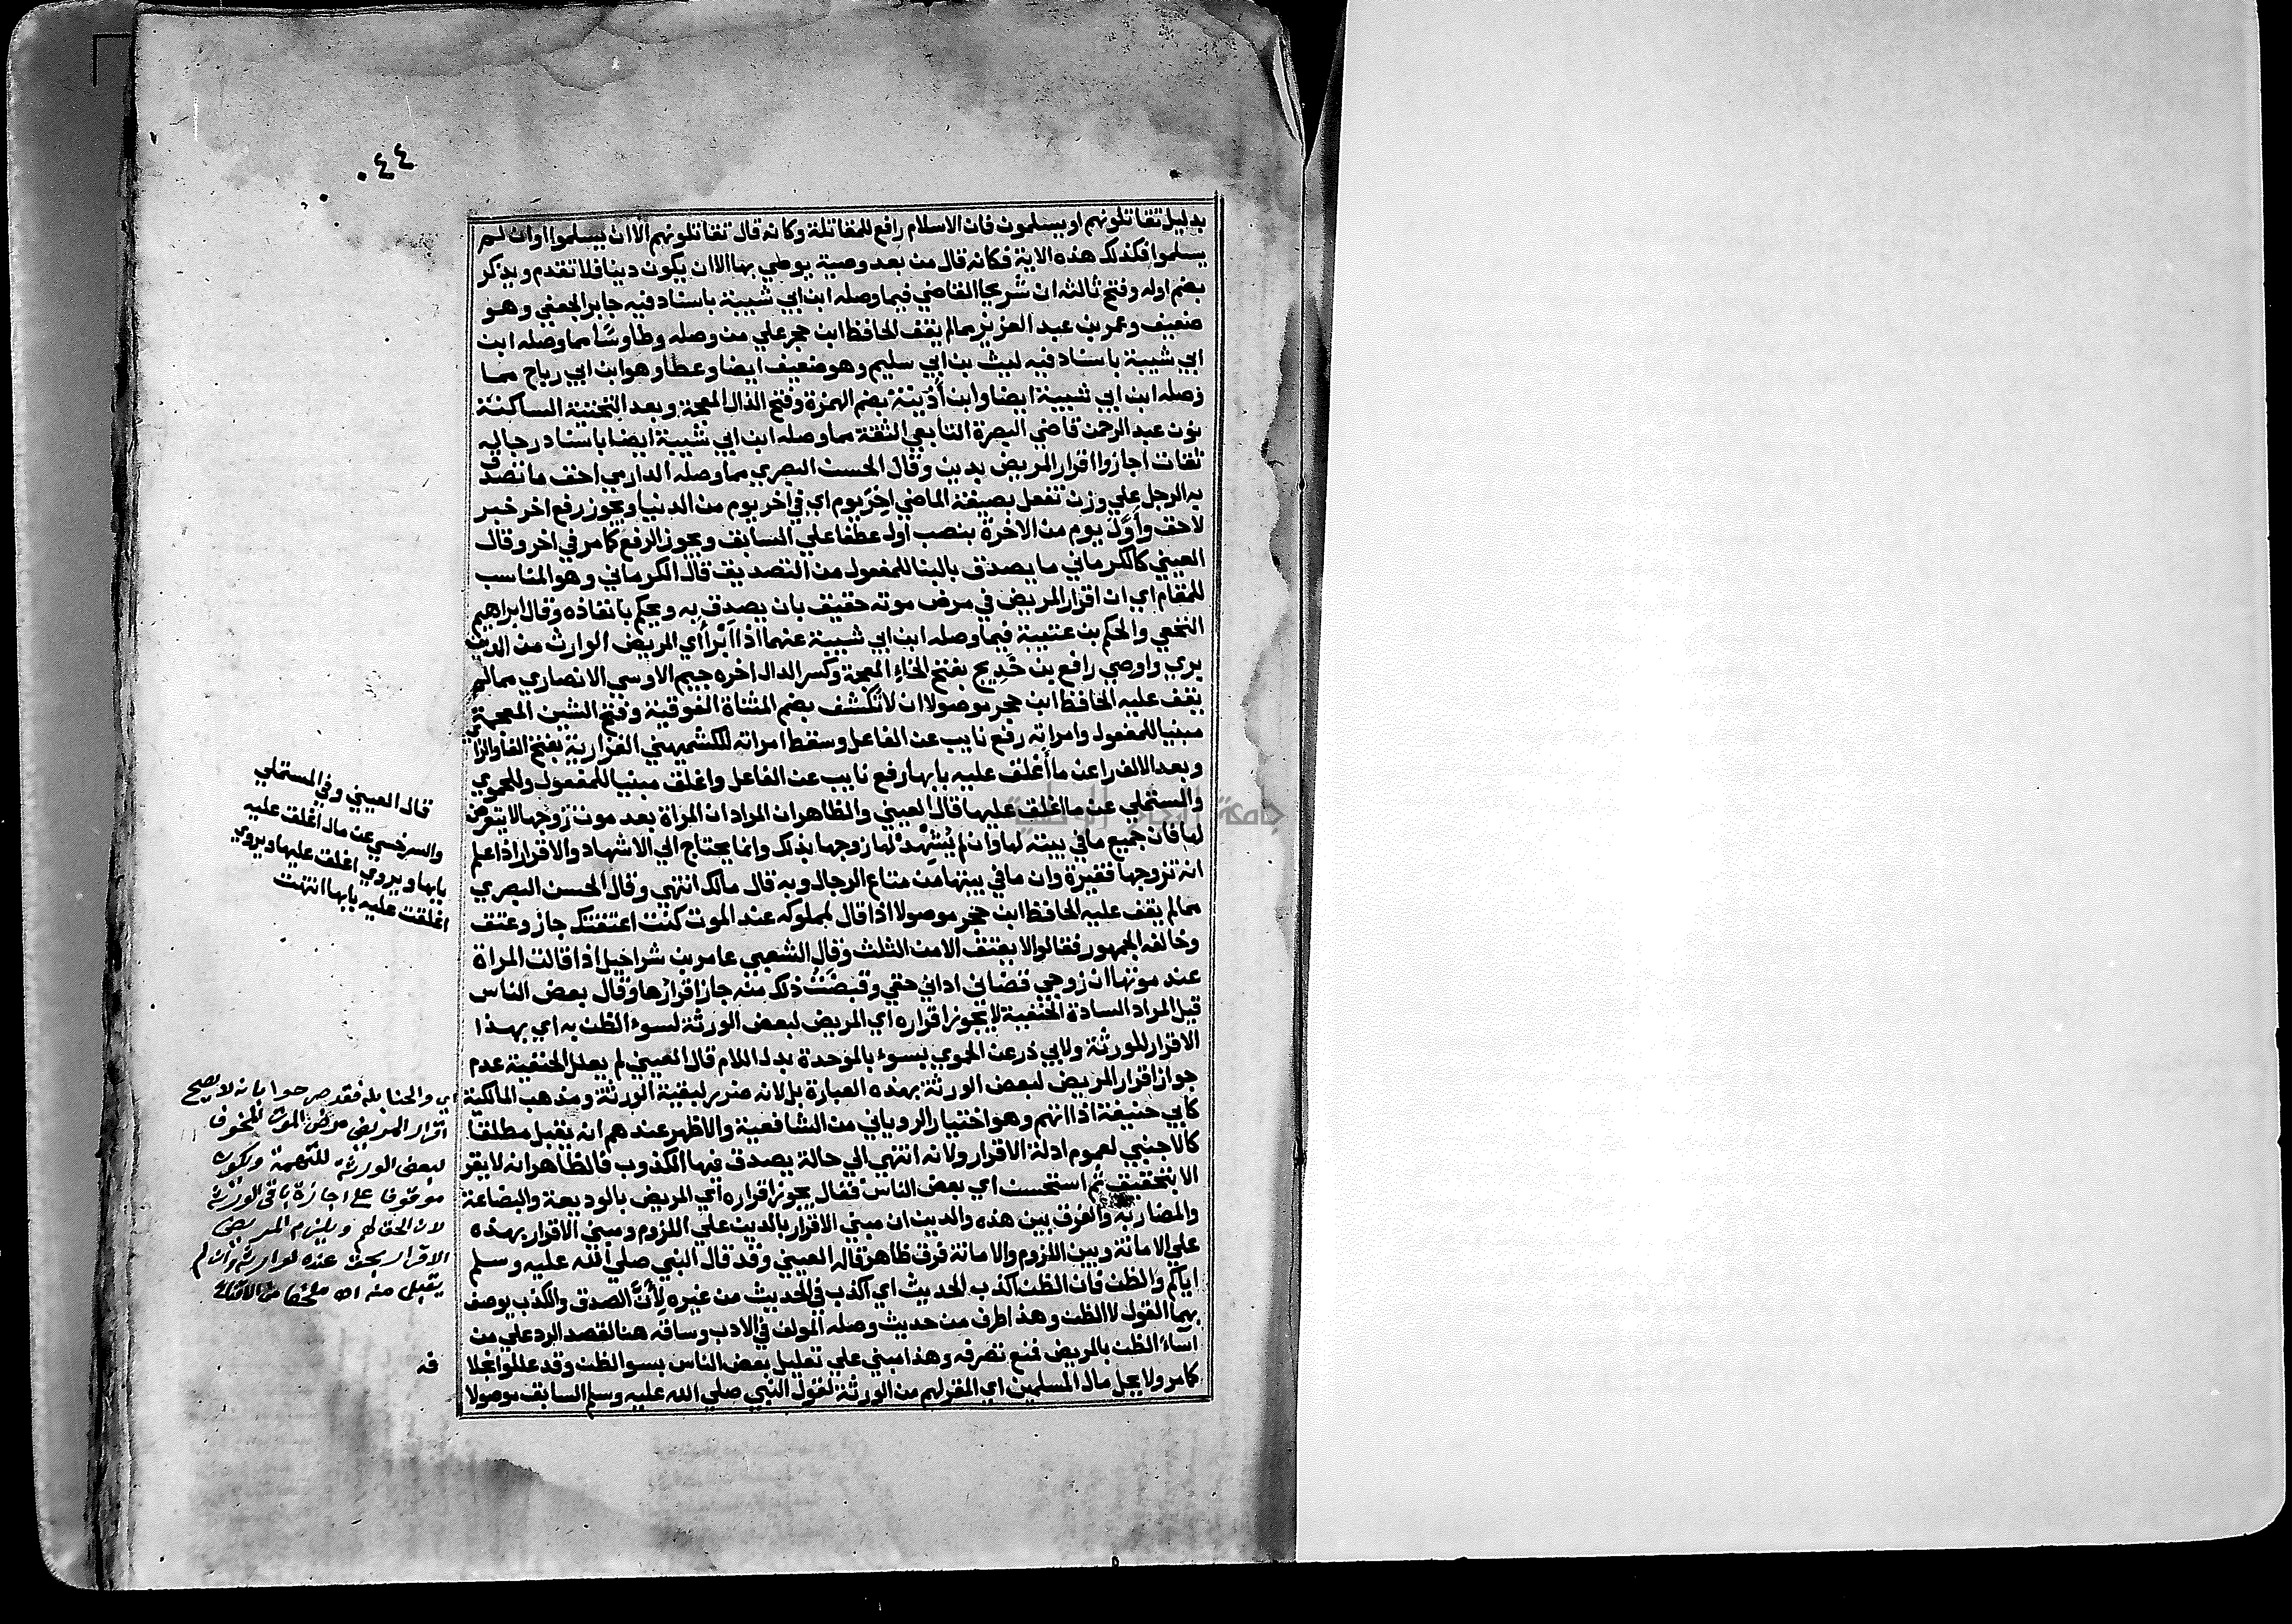 ٠٤٤
بدليل تقاتلونهم او يسلموت فان الاسلام رافع للمقاتلة وكانه قال تقاتلونهم الا ان يسلموا اوان لم
يسلموا فكذلك هذه الاية فكانه قال من بعد وصية يوصي بها الاان يكون دينا فلا تقدم ويذكر
بضم اوله وفتح ثالثه ان شريحا القاضي فيما وصله ابن ابي شيبة باسناد فيه جابر الجعفي وهو
ضعيف وعمر بن عبد العزيز مما لم يقف الحافظ ابن حجر علي من وصله وطاوسًا مما وصله ابن
ابي شيبة باسناد فيه ليث بن ابي سليم وهو ضعيف ايضا وعطا وهو ابن ابي رباح مما
وصله ابن ابي شيبة ايضا وابن أذينة بضم الهمزة وفتح الذال المعجمة وبعد التحتية الساكنة
نون عبد الرحمن قاضي البصرة التابعي الثقة مما وصله ابن ابي شيبة ايضا باسناد رجاله
ثقات اجازوا اقرار المريض بدين وقال الحسن البصري مما وصله الدارمي احق ما تصدق
به الرجل علي وزن تفعل بصيغة الماضي اخرَ يوم اي في اخر يوم من الدنيا ويجوز رفع اخر خبر
لاحق وأوَّلَ يوم من الاخرة بنصب اول عطفا علي السابق ويجوز الرفع كما مر في اخر وقال
العيني كالكرماني ما يصدق بالبنا للمفعول من التصديق قال الكرماني وهو المناسب
للمقام اي ان اقرار المريض في مرض موته حقيق بان يصدق به ويحكم بانفاذه وقال ابراهيم
النخعي والحكم بن عتيبة فيما وصله ابن ابي شيبة عنهما اذا أبرأ اي المريض الوارث من الدين
بري واوصي رافع بن خَدِيج بفتح الخاء المعجمة وكسر الدال اخره جيم الاوسي الانصاري مما لم
يقف عليه الحافظ ابن حجر موصولا ان لا تُكشَف بضم المثناة الفوقية وفتح الشين المعجمة
مبنيا للمفعول وامراته رفع نايب عن الفاعل وسقط امراته للكشميهني الفزارية بفتح الفا والزا
وبعد الالف را عن ما أُغلق عليه بابها رفع نايب عن الفاعل واغلق مبنيا للمفعول وللحموي
والمستملي عن ما اغلق عليها قال العيني والظاهر ان المراد ان المراة بعد موت زوجها لا يتعرض
لها فان جميع ما في بيته لها وان لم يُشهِد لها زوجها بذلك وانما يحتاج الي الاشهاد والاقرار اذا علم
انه تزوجها فقيرة وان ما في بيتها من متاع الرجال وبه قال مالك انتهي وقال الحسن البصري
مما لم يقف عليه الحافظ ابن حجر موصولا اذا قال لمملوكه عند الموت كنت اعتقتك جاز وعتق
وخالفه الجمهور فقالوا لا يعتق الا من الثلث وقال الشعبي عامر بن شراحيل اذا قالت المراة
عند موتها ان زوجي قضاني اداني حقي وقبضْتُ ذلك منه جاز اقرارها وقال بعض الناس
قيل المراد السادة الحنفية لا يجوز اقراره اي المريض لبعض الورثة لسوء الظن به اي بهذا
الاقرار للورثة ولابي ذر عن الحموي بسوء بالموحدة بدل اللام قال العيني لم يعلل الحنفية عدم
جواز اقرار المريض لبعض الورثة بهذه العبارة بل لانه ضرر لبقية الورثة ومذهب المالكية
كابي حنيفة اذا اتهم وهو اختيار الروياني من الشافعية والاظهر عندهم انه يقبل مطلقا
كالاجنبي لعموم ادلة الاقرار ولانه انتهي الي حالة يصدق فيها الكذوب فالظاهر انه لا يقر
الا بتحقيق ثم استحسن اي بعض الناس فقال يجوز اقراره اي المريض بالوديعة والبضاعة
والمضاربة والفرق بين هذه والدين ان مبني الاقرار بالدين علي اللزوم ومبني الاقرار بهذه
علي الامانة وبين اللزوم والامانة فرق ظاهر قاله العيني وقد قال النبي صلي الله عليه وسلم
اياكم والظن فان الظن اكذب الحديث اي اكذب في الحديث من غيره لأنَّ الصدق والكذب يوصف
بهما القول لا الظن وهذا طرف من حديث وصله المولف في الادب وساقه هنا لقصد الرد علي من
اساء الظن بالمريض فمنع تصرفه وهذا مبني علي تعليل بعض الناس بسو الظن وقد عللوا بخلا
كما مر ولا يحل مال المسلمين اي المقر لهم من الورثة لقول النبي صلي الله عليه وسلم السابق موصولا
فه
قال العيني وفي المستملي
والسرخسي عن مال اغلق عليه
بابها ويروي اغلق عليها ويروي
اغلقت عليه بابها انتهت
اي والحنابلة فقد صرحوا بانه لا يصح
اقرار المريض مرض الموت المخوف
لبعض الورثة للتهمة ويكون
موقوفا على اجازة باقي الورثة
لان الحق لهم ويلزم المريض
الاقرار بحق عنده لوارثه وان لم
يقبل منه اه من الاقناع
جامعة النجاح الوطنية